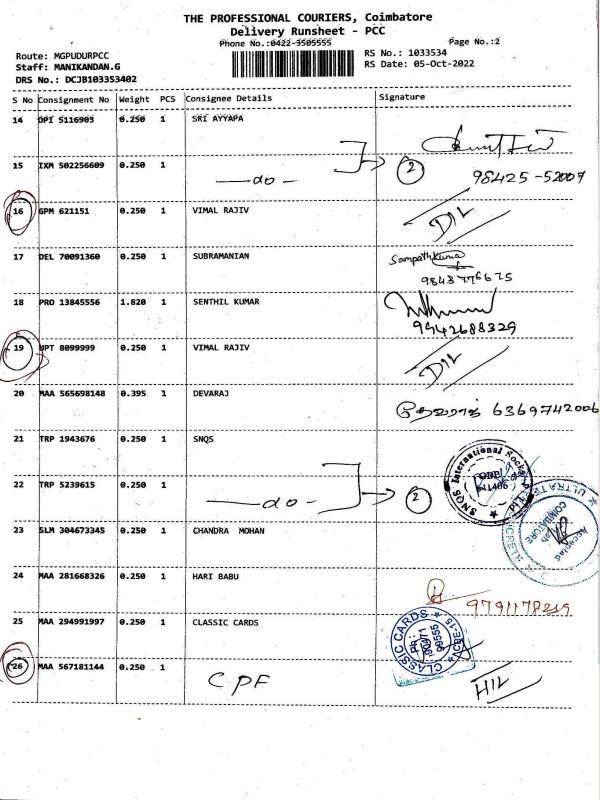 THE PROFESSIONAL COURIERS, Coimbatore
Delivery Runsheet - PCC
Phone No.:0422-3505555 Page No.:2
Route: MGPUDURPCC RS No.: 1033534
Staff: MANIKANDAN.G RS Date: 05-Oct-2022
DRS No.: DCJB103353402
S No Consignment No Weight PCS Consignee Details Signature
14 DPI 5116903 0.250 1 SRI AYYAPA
15 IXM 502256609 0.250 1 — do — 2 98425-52007
16 GPM 621151 0.250 1 VIMAL RAJIV D/L
17 DEL 70091360 0.250 1 SUBRAMANIAN Sampathkumar
18 PRO 13845556 1.820 1 SENTHIL KUMAR 9942688329
19 UPT 8099999 0.250 1 VIMAL RAJIV D/L
20 MAA 565698148 0.395 1 DEVARAJ தேவராஜ் 6369742006
21 TRP 1943676 0.250 1 SNQS
22 TRP 5239615 0.250 1 — do — 2
SNQS International Socks
23 SLM 304673345 0.250 1 CHANDRA MOHAN
ULTRATE
COIMBATORE
24 MAA 281668326 0.250 1 HARI BABU 9791178219
25 MAA 294991997 0.250 1 CLASSIC CARDS
CLASSIC CARDS
CBE-15
26 MAA 567181144 0.250 1 CPF H/L